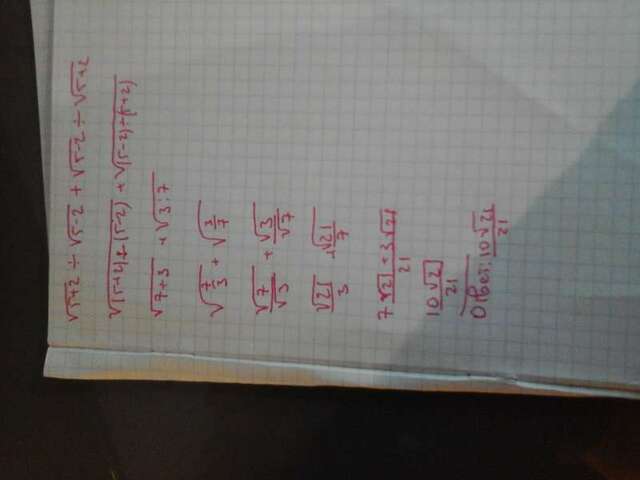 √5+2 ÷ √5-2 + √5-2 ÷ √5+2
√(5+2)÷(5-2) + √(5-2)÷(5+2)
√7÷3 + √3:7
√7/3 + √3/7
√7/√3 + √3/√7
√21/3 + √21/7
7√21+3√21/21
10√21/21
Ответ: 10√21/21